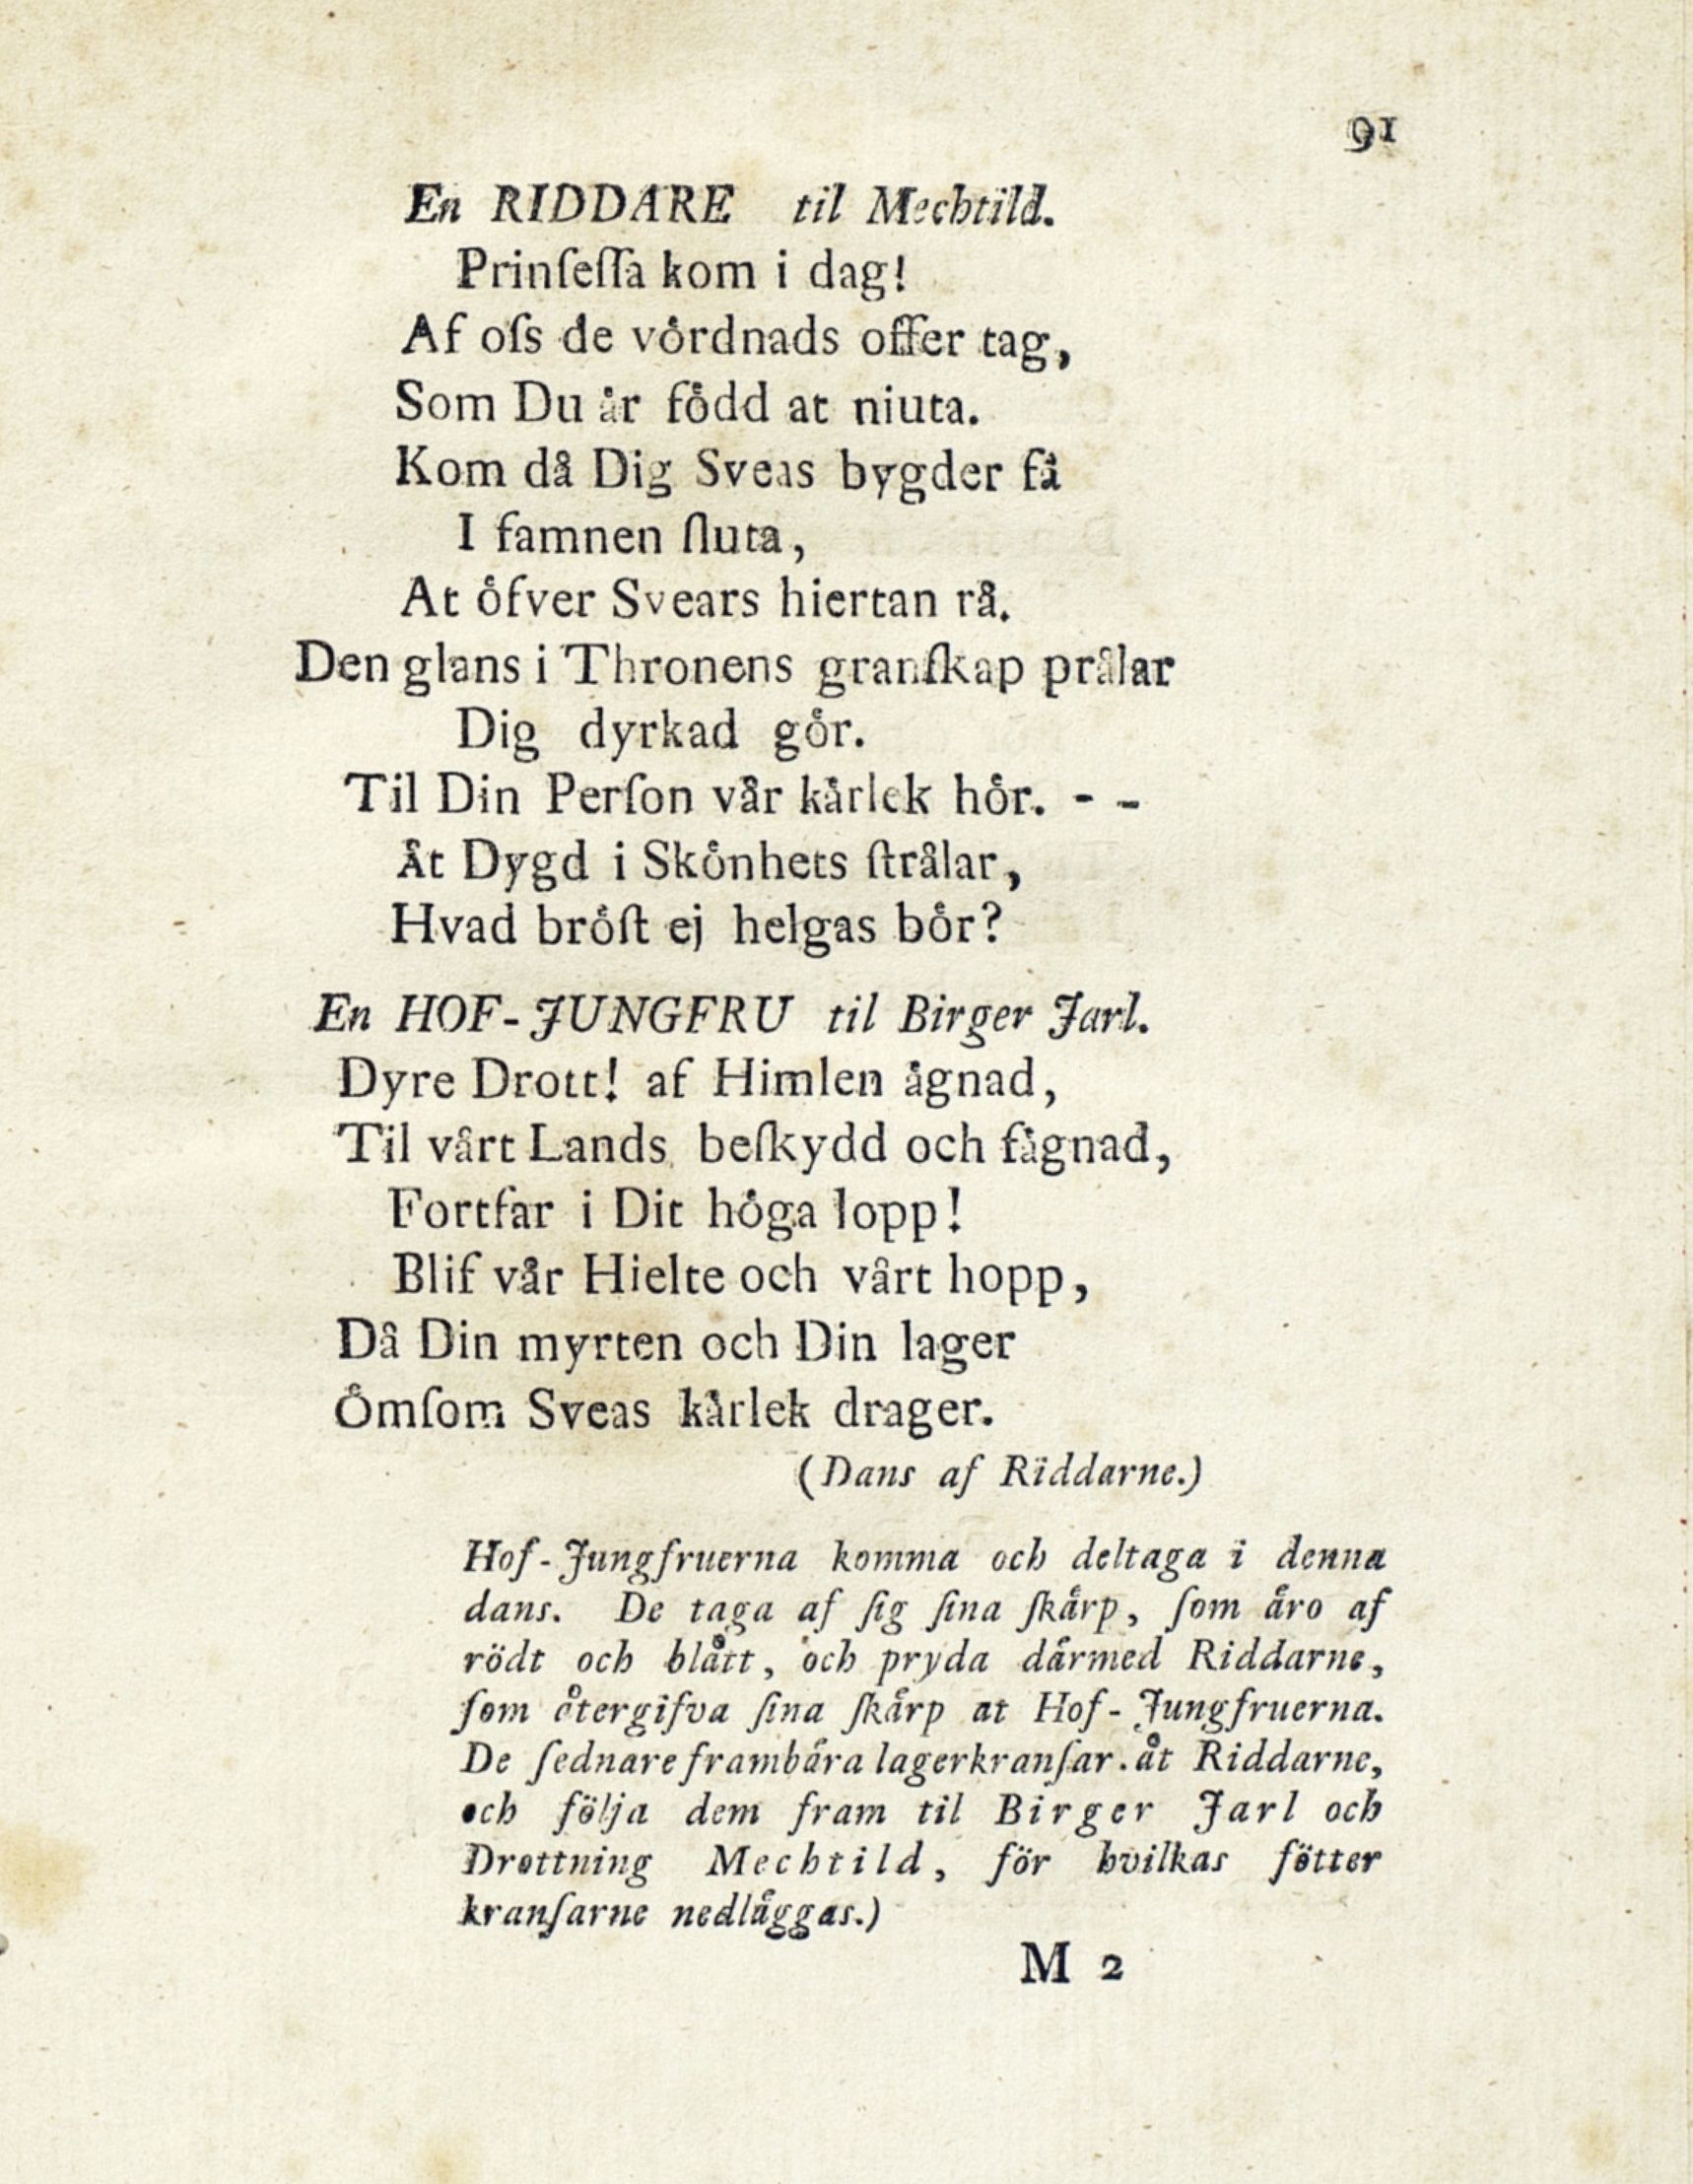 91
En RIDDARE til Mechtild.
Prinſeſſa kom i dag!
Af oſs de vördnads offer tag,
Som Du är född at niuta.
Kom då Dig Sveas bygder få
I famnen ſluta,
At öfver Svears hiertan rå.
Den glans i Thronens granſkap prålar
Dig dyrkad gör.
Til Din Perſon vår kärlek hör. - -
Åt Dygd i Skönhets ſtrålar,
Hvad bröſt ej helgas bör?
En HOF-JUNGFRU til Birger Jarl.
Dyre Drott! af Himlen ägnad,
Til vårt Lands beſkydd och fägnad,
Fortfar i Dit höga lopp!
Blif vår Hielte och vårt hopp,
Då Din myrten och Din lager
Ömſom Sveas kärlek drager.
(Dans af Riddarne.)
Hof-Jungfruerna komma och deltaga i denna
dans. De taga af ſig ſina ſkärp, ſom äro af
rödt och blått, och pryda därmed Riddarne,
ſom återgifva ſina ſkärp at Hof-Jungfruerna.
De ſednare frambära lagerkranſar. åt Riddarne,
och följa dem fram til Birger Jarl och
Drottning Mechtild, för hvilkas fötter
kranſarne nedläggas.)
M 2